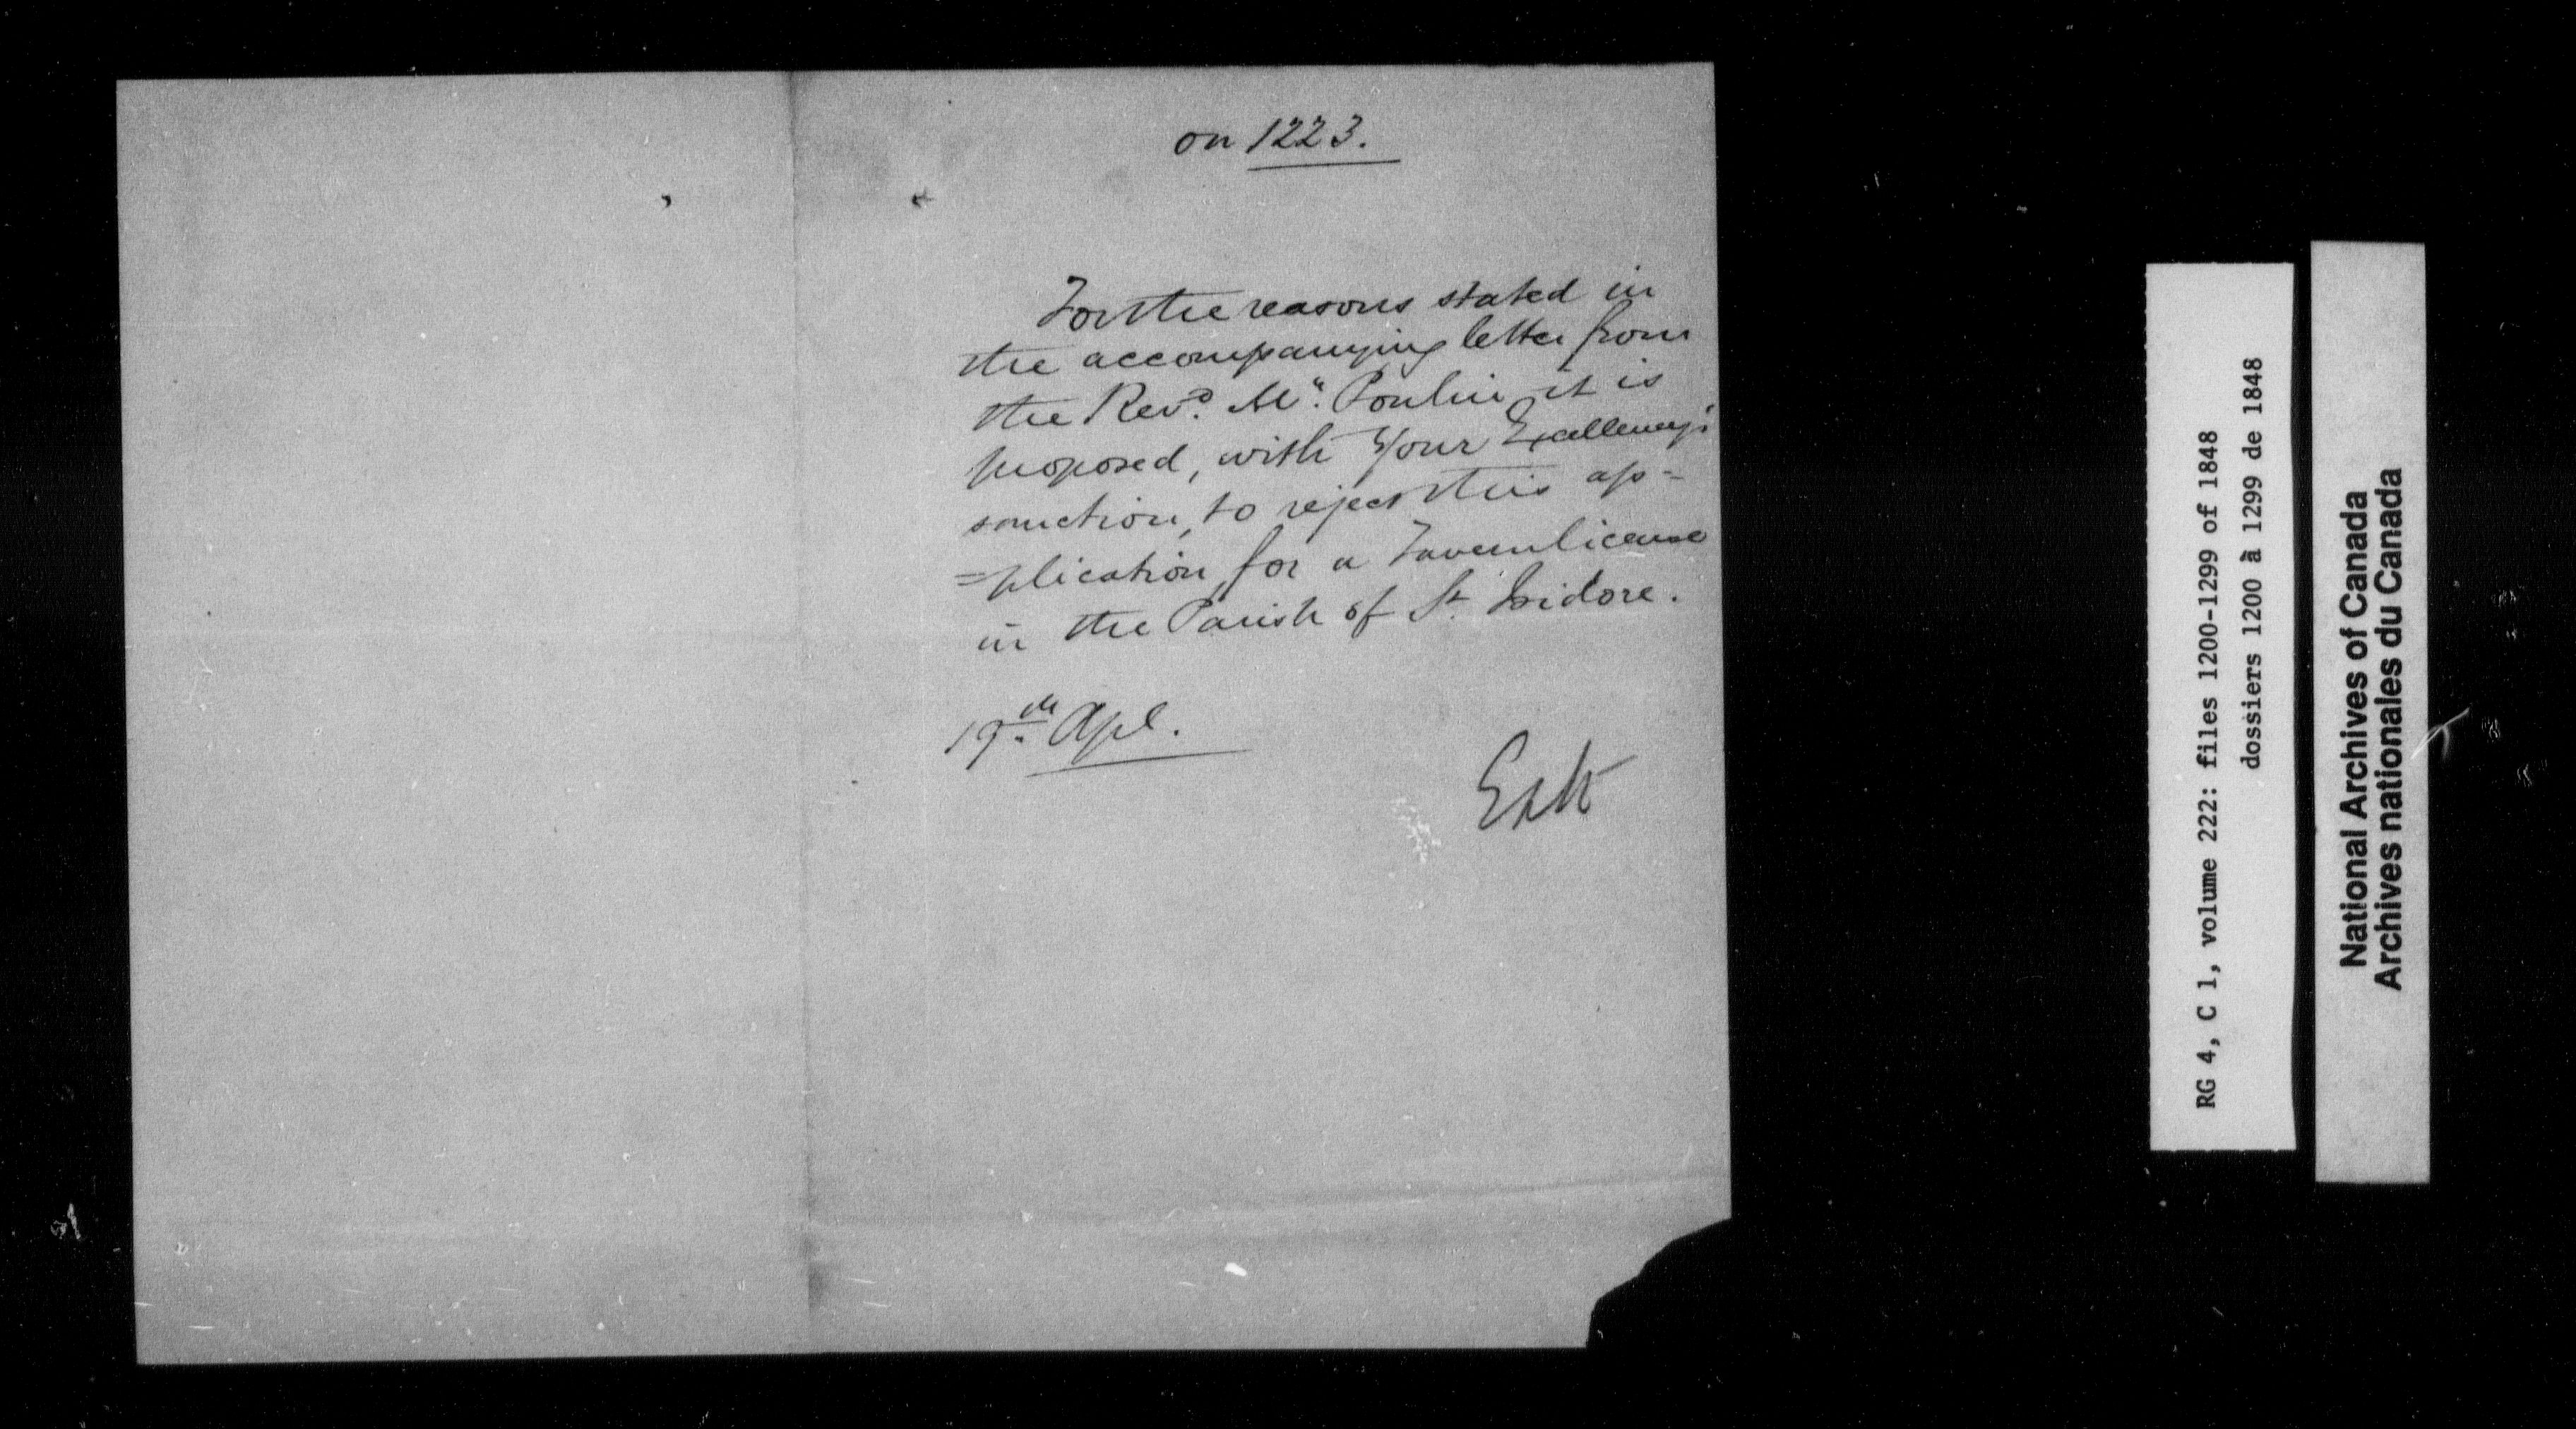 on 1223.
For the reasons stated in
the accompanying letter from
the Revd. Mr. Poulin it is
proposed, with Your Excellency's
sanction, to reject this ap-
=plication for a Tavern license
in the Parish of St. Isidore.
19th. Apl.
RG 4, C 1, volume 222: files 1200-1299 of 1848
dossiers 1200 à 1299 de 1848
National Archives of Canada
Archives nationales du Canada